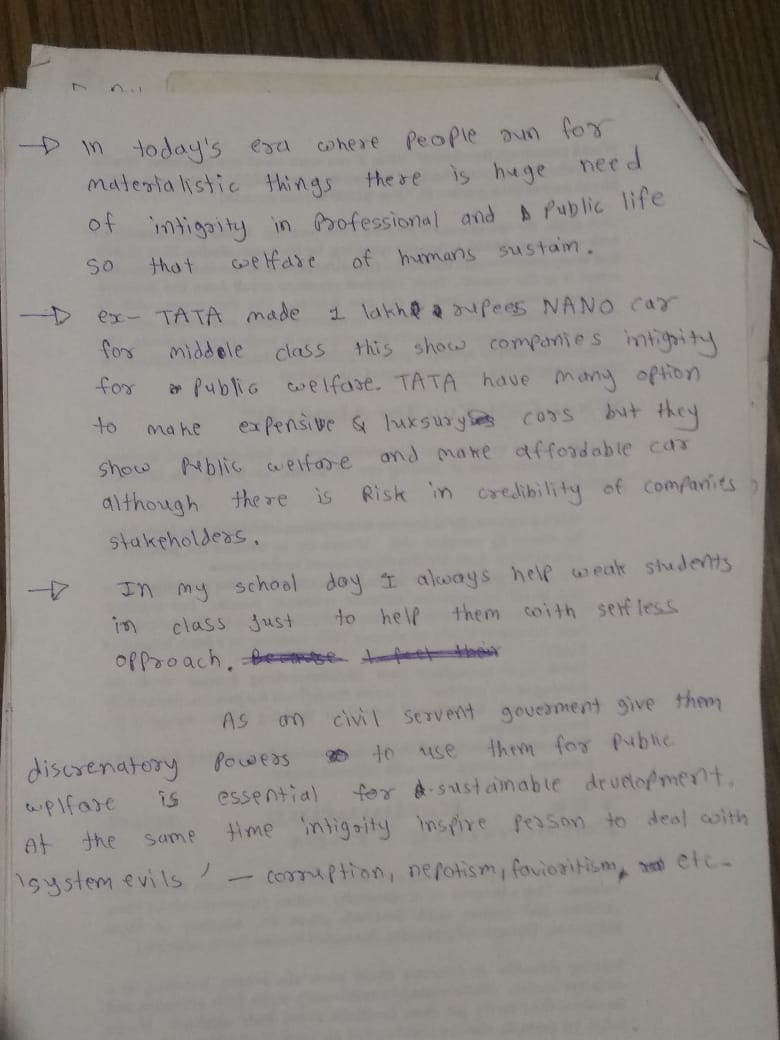 → In today's era where People run for
materialistic things there is huge need
of intigrity in Professional and Public life
so that welfare of humans sustain.
→ ex- TATA made 1 lakh rupees NANO car
for middle class this show companies intigrity
for Public welfare. TATA have many option
to make expensive & luxsury cars but they
show Public welfare and make affordable car
although there is Risk in credibility of companies
stakeholders.
→ In my school day I always help weak students
in class Just to help them with selfless
approach. Because I feel their
As an civil servent goverment give them
discrenatory Powers to use them for Public
welfare is essential for sustainable development.
At the same time intigrity inspire Person to deal with
'system evils' - corruption, nepotism, favioritism, etc-